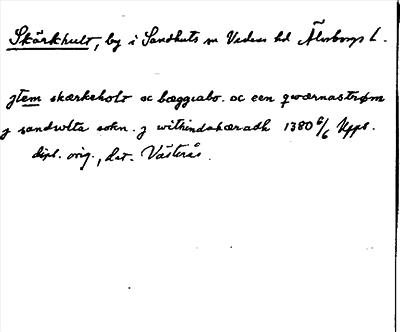 Skärkhult, by i Sandhults sn Vedens hd Älvsborgs l.
Jtem skærkeholt oc bæggiabo. oc een qwærnastrøm
j sandwlta sokn. j withindahæradh 1380 6/6 Uppl.
dipl. orig., dat. Västerås.